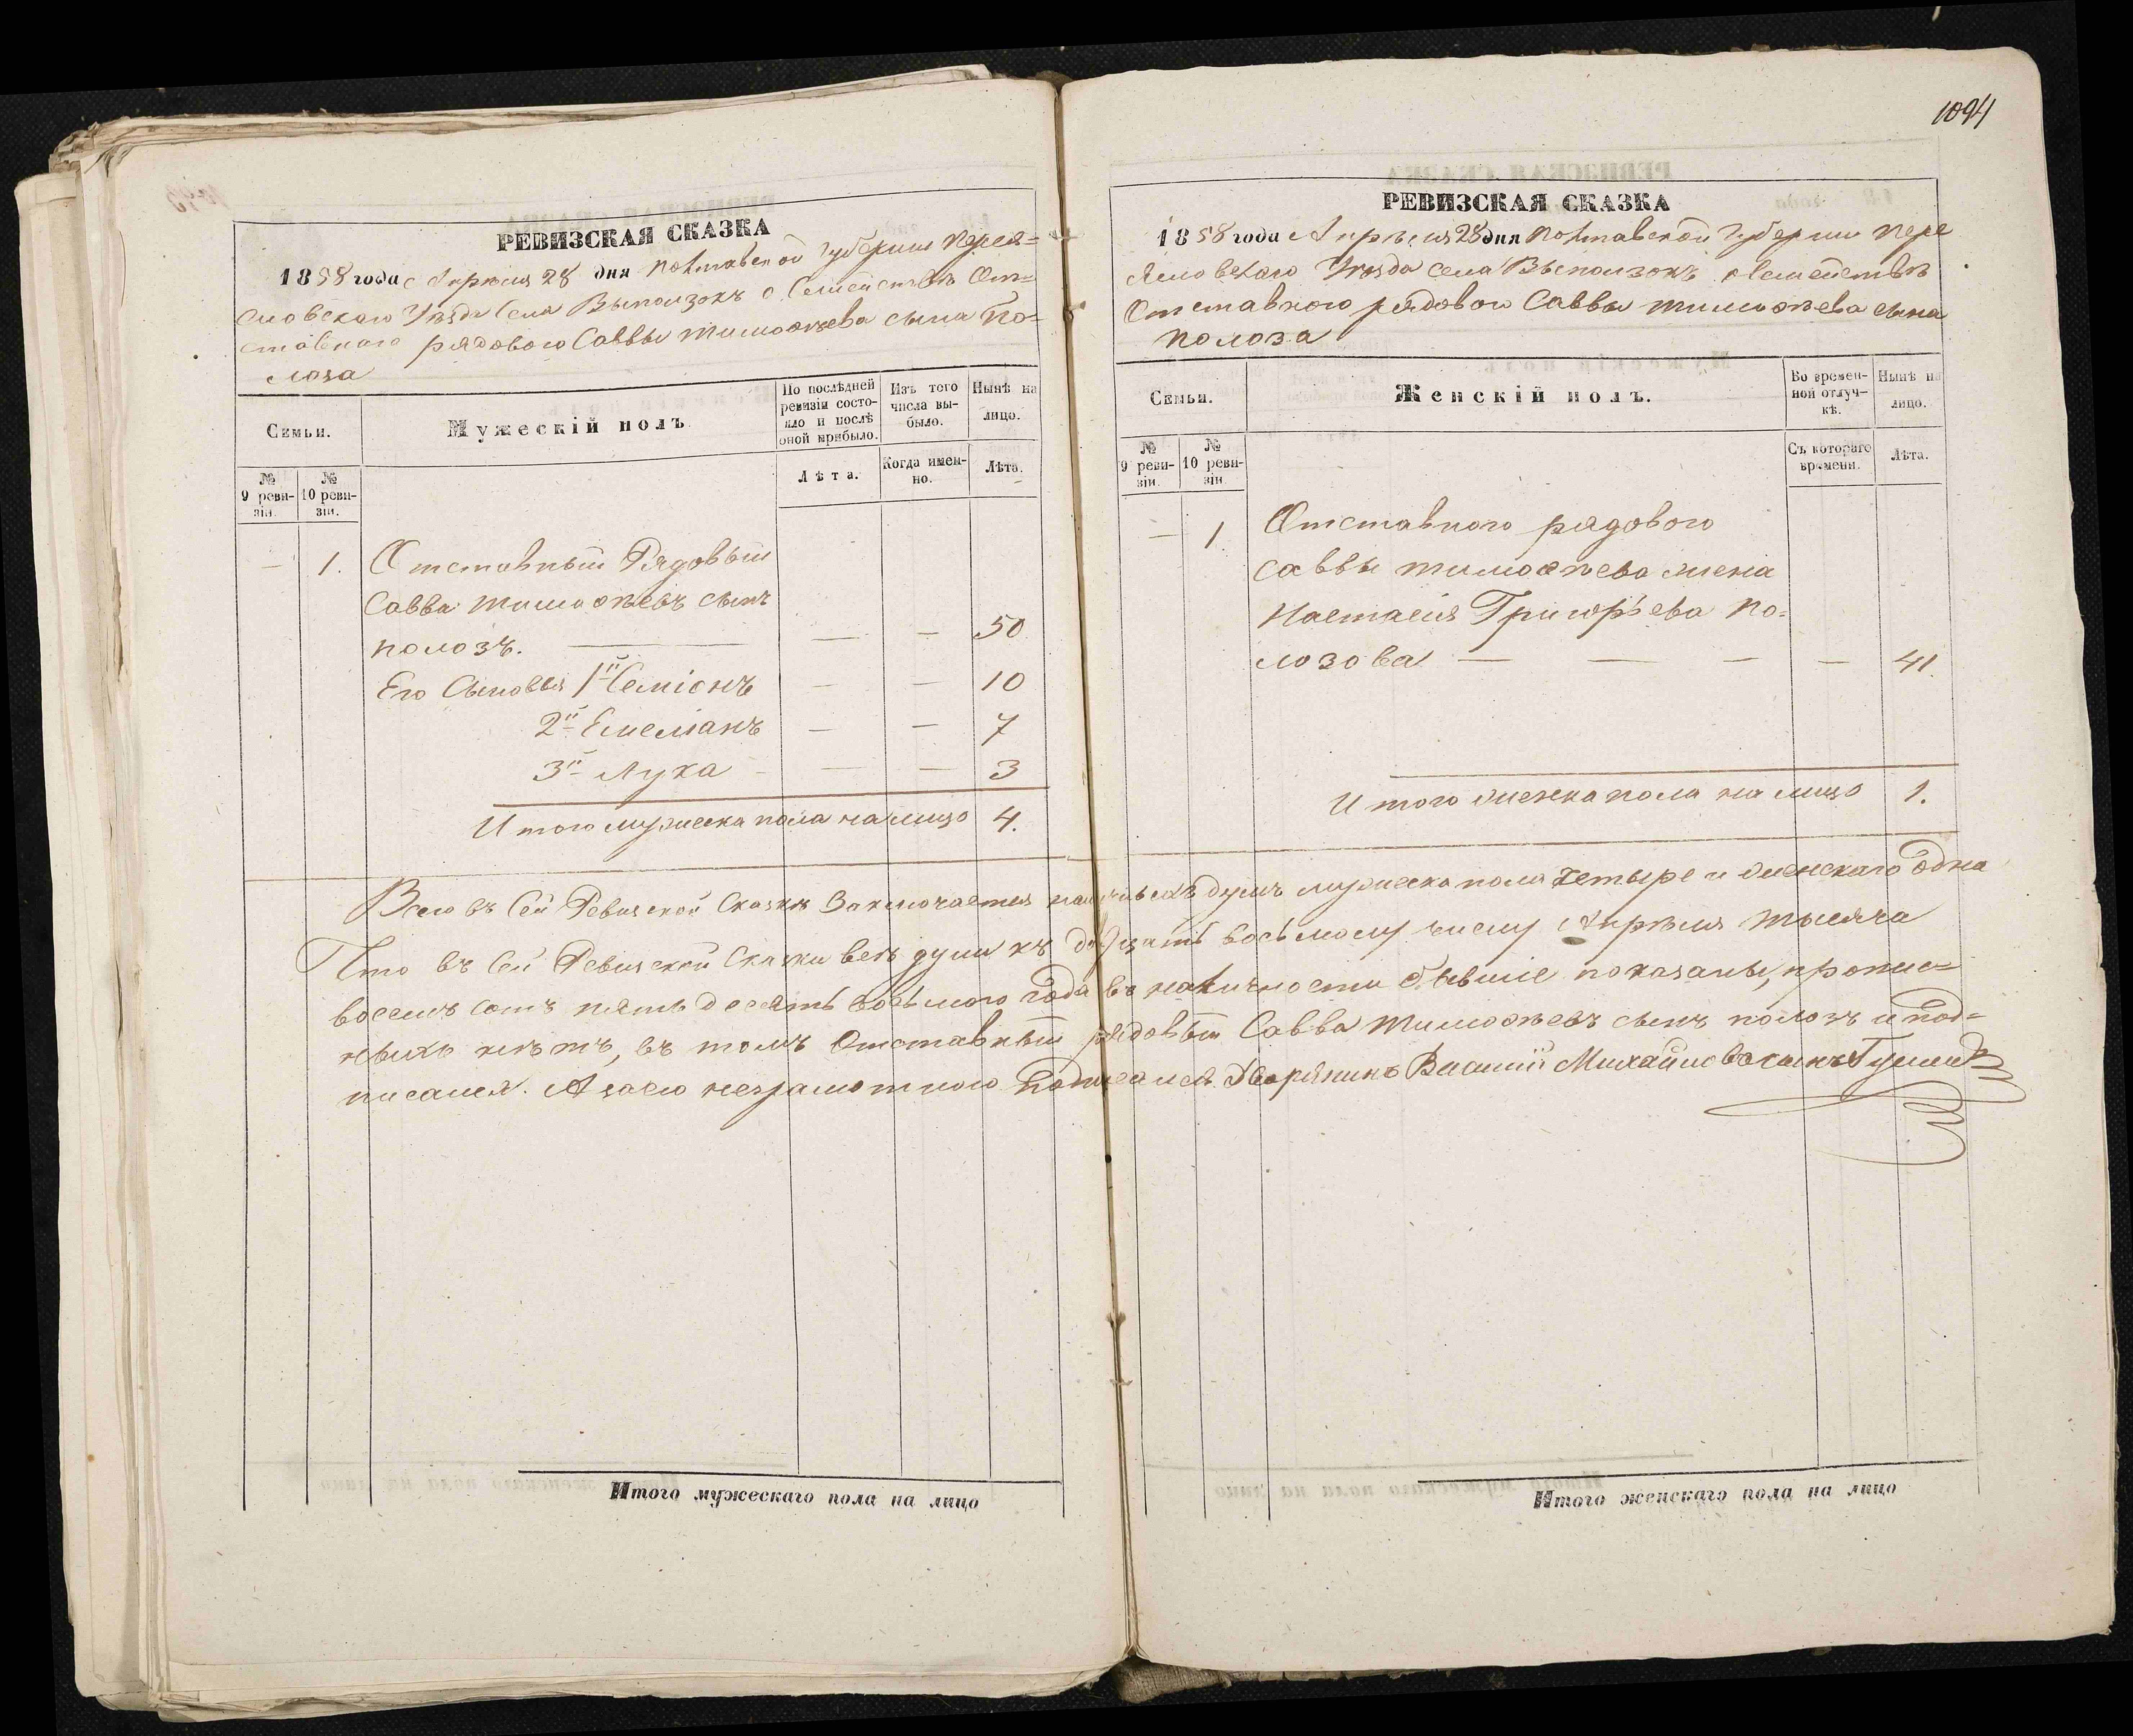 РЕВИЗСКАЯ СКАЗКА
1858 года Апрѣля 28 дня Полтавской Губернии Перея=
словского Уѣзда Села Выползокъ о Семействѣ От=
ставнаго рядового Саввы Тимофѣева сына По=
лоза
Семьи.
Мужескій полъ
По послѣдней ревизіи состо-
яло и послѣ
оной прибыло.
Изъ того
числа вы-
было.
Нынѣ на
лицо.
№
9 реви-
зіи.
№
10 реви-
зіи.
Лѣта.
Когда имен-
но.
Лѣта.
— 1. Отставный Рядовый
Савва Тимофѣевъ сынъ
Полозъ. — — — 50
Его Сыновья 1й Семіонъ — — 10
2й Емеліанъ — — 7
3й Лука — — 3
Итого мужеска пола на лицо 4.
1094
РЕВИЗСКАЯ СКАЗКА
1858 года Апрѣля 28 дня Полтавской Губернии Пере
яславского Уѣзда села Выползокъ о Семействѣ
Отставного рядового Саввы Тимофѣева сына
Полоза
Семьи.
Женскій полъ.
Во времен-
ной отлуч-
кѣ.
Нынѣ на
лицо.
№
9 реви-
зіи.
№
10 реви-
зіи.
Съ котораго
времени.
Лѣта.
— 1. Отставного рядового
Саввы Тимофѣева жена
Настасія Григорьева По-
лозова — — — — 41.
Итого женска пола на лицо 1.
Всего въ Сей Ревизской Сказкѣ Заключается наличныхъ душъ мужеска пола четыре и женскаго одна
Что въ Сей Ревизской Сказки всѣ души къ двадцать восьмому числу Апрѣля тысяча
восемъ сотъ пятьдесять восьмого года въ наличности бывшіе показаны, пропис=
ныхъ нѣтъ, въ томъ Отставный рядовый Савва Тимофѣевъ сынъ Полозъ и под=
писался. А за его неграмотного подписался Дворянинъ Василій Михайловъ сынъ
Итого мужескаго пола на лицо
Итого женскаго пола на лицо